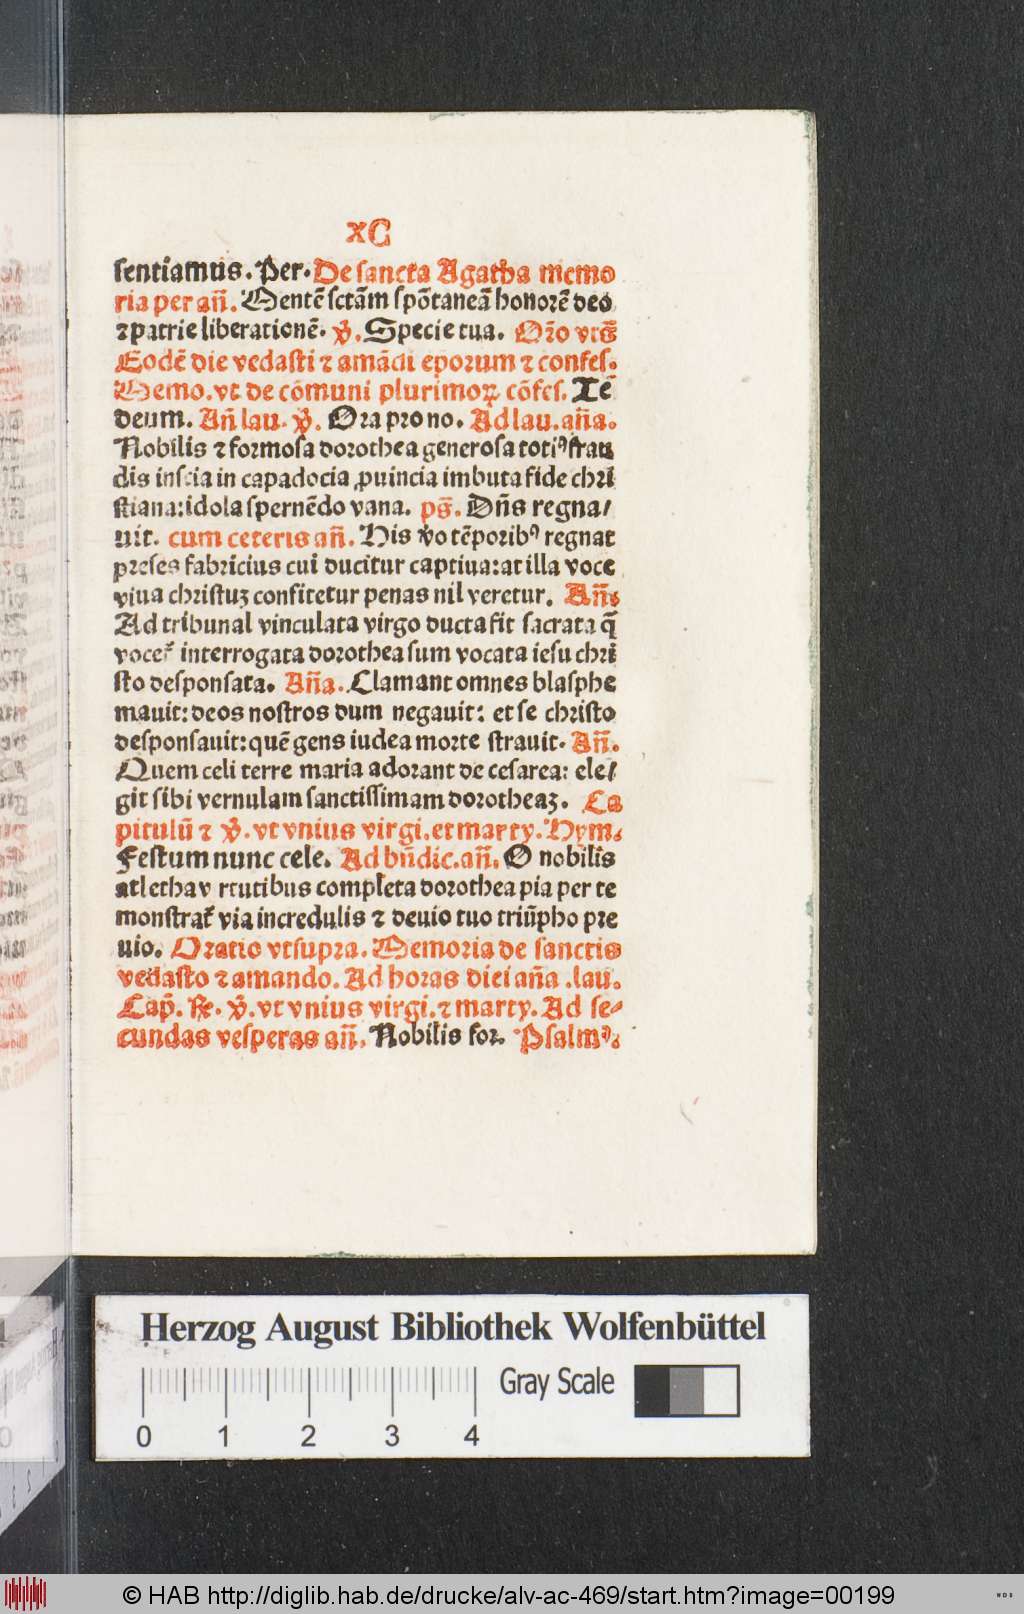 xC
sentiamus. Per. De sancta Agatha memo
ria per an̄. Mentē sctām spōtaneā honorē deo
⁊ patrie liberationē. v̓. Specie tua. Or̄o vts̄
Eodē die vedasti ⁊ amādi eporum ⁊ confes.
Memo. vt de cōmuni plurimoꝝ cōfes. Tē
deum. An̄ lau. v̓. Ora pro no. Ad lau. an̄a.
Nobilis ⁊ formosa dorothea generosa totiꝰ frau
dis inscia in capadocia ꝓuincia imbuta fide chri
stiana: idola spernēdo vana. ps̄. Dn̄s regna/
uit. cum ceteris an̄. His v̓o tēporibꝰ regnat
preses fabricius cui ducitur captiua: at illa voce
viua christuꝫ confitetur penas nil veretur. An̄.
Ad tribunal vinculata virgo ducta fit sacrata q̄
vocer̄ interrogata dorothea sum vocata iesu chri
sto desponsata. An̄a. Clamant omnes blasphe
mauit: deos nostros dum negauit: et se christo
desponsauit: quē gens iudea morte strauit. An̄.
Quem celi terre maria adorant de cesarea: ele/
git sibi vernulam sanctissimam dorotheaꝫ. Ca
pitulū ⁊ v̓. vt vnius virgi. et marty. Hym.
Festum nunc cele. Ad bn̄dic. an̄. O nobilis
atletha v rtutibus completa dorothea pia per te
monstrat̄ via incredulis ⁊ deuio tuo triūpho pre
uio. Oratio vtsupra. Memoria de sanctis
vedasto ⁊ amando. Ad horas diei an̄a .lau.
Cap̄. ℞. v̓. vt vnius virgi. ⁊ marty. Ad se/
cundas vesperas an̄. Nobilis for. Psalmꝰ.
Herzog August Bibliothek Wolfenbüttel
Gray Scale
0 1 2 3 4
© HAB http://diglib.hab.de/drucke/alv-ac-469/start.htm?image=00199